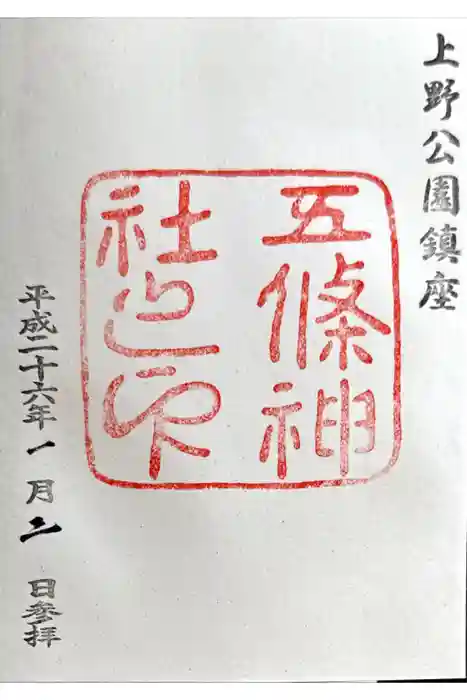 上野公園鎮座
五條神
社之印
平成二十六年一月二日参拝